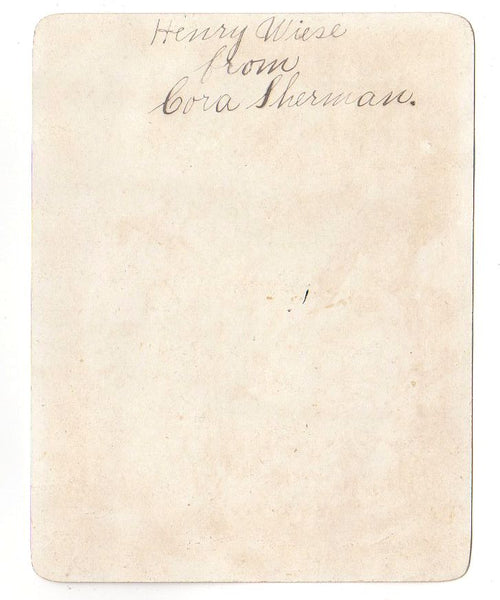 Henry Wiese
from
Cora Sherman.